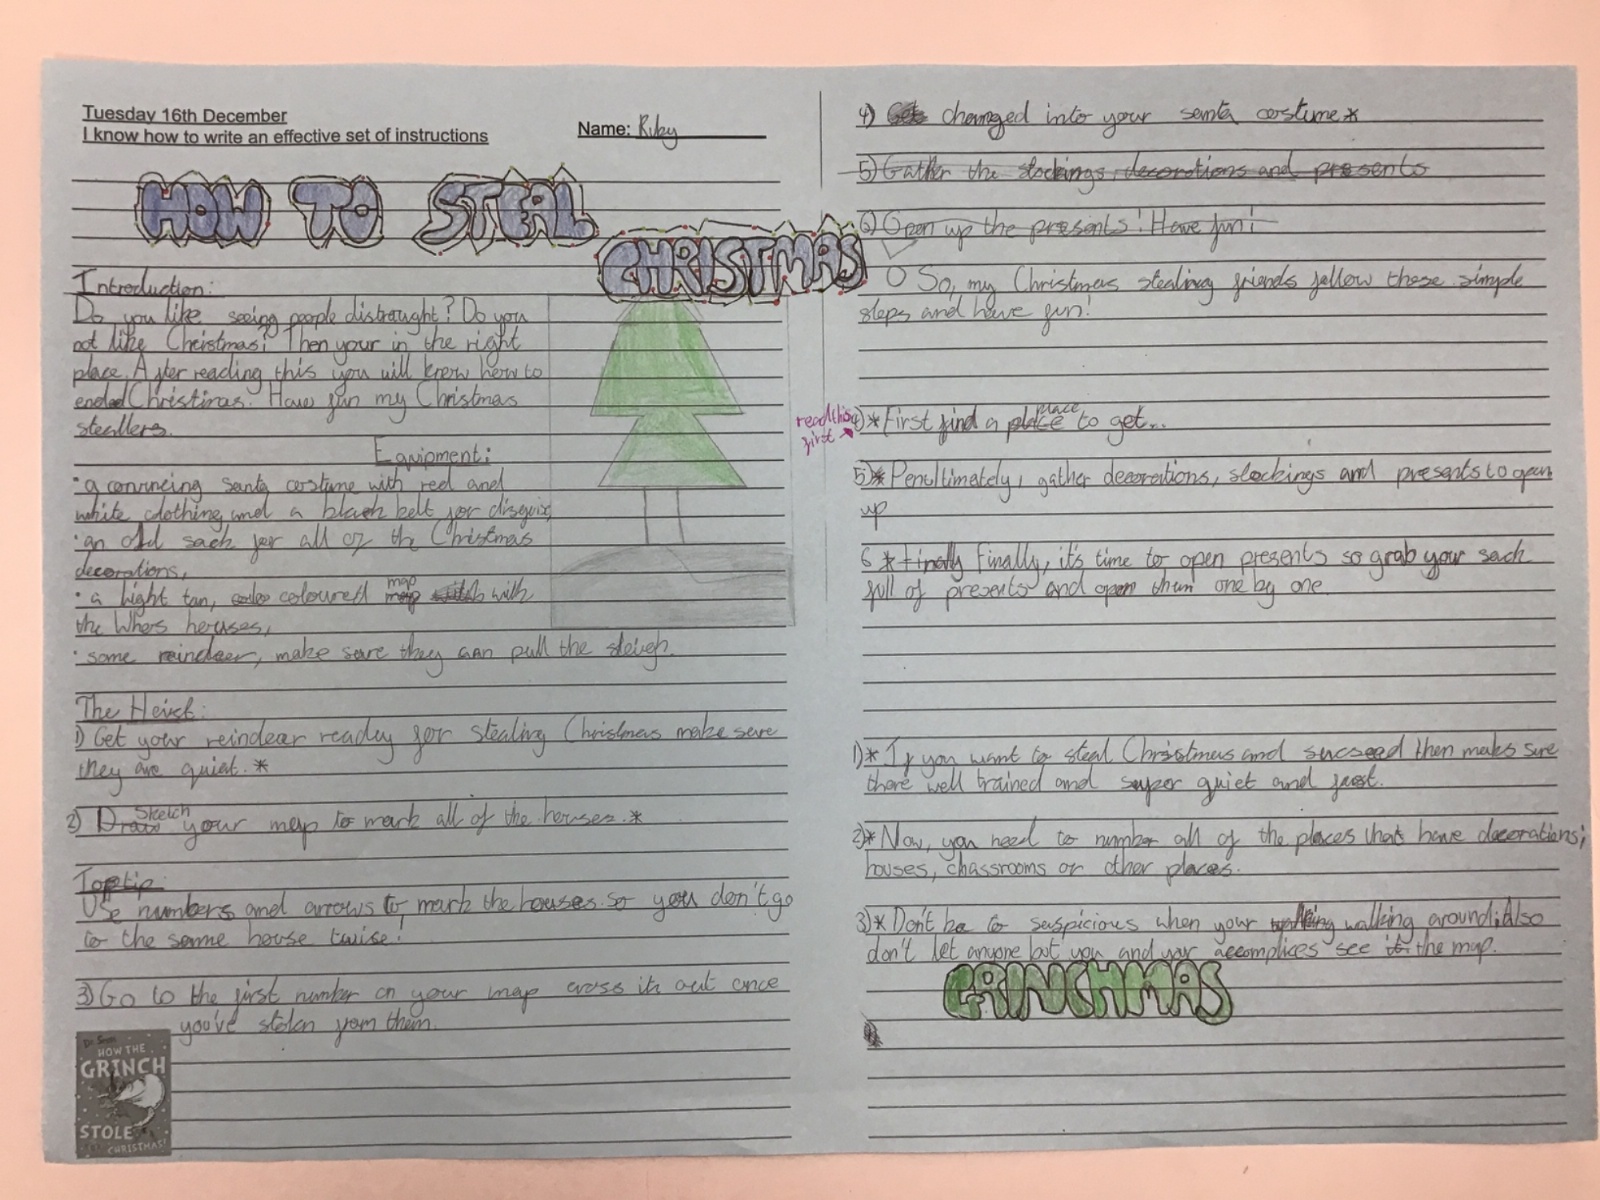 Tuesday 16th December
I know how to write an effective set of instructions
Name: Ruby
HOW TO STEAL
CHRISTMAS
Introduction:
Do you like seeing people distraught? Do you
not like Christmas? Then your in the right
place. After reading this you will know how to
ended Christmas. Have fun my Christmas
steallers.
Equipment:
• a convincing santa costume with red and
white clothing and a black belt for disguise,
• an old sack for all of the Christmas
decorations,
• a light tan, coloured map with
the Whos houses,
• some reindeer, make sure they can pull the sleigh.
The Heist:
1) Get your reindear readey for stealing Christmas make sure
they are quiet. *
2) Sketch your map to mark all of the houses. *
Top tip:
Use numbers and arrows to mark the houses so you don't go
to the same house twise!
3) Go to the first number on your map cross it out once
you've stolen from them.
Dr. Seuss
HOW THE
GRINCH
STOLE
CHRISTMAS!
4) Get changed into your santa costume *
5) Gather the stockings, decorations and presents
6) Open up the presents! Have fun!
O So, my Christmas stealing friends follow these simple
steps and have fun!
read this
first
4) * First find a place to get...
5) * Penultimately, gather decorations, stockings and presents to open
up
6 * Finally Finally, it's time to open presents so grab your sack
full of presents and open them one by one.
1) * If you want to steal Christmas and succeed then make sure
there well trained and super quiet and fast.
2) * Now, you need to number all of the places that have decorations;
houses, chassrooms or other places.
3) * Don't be to suspicious when your walking around; Also
don't let anyone but you and your accomplices see it the map.
GRINCHMAS